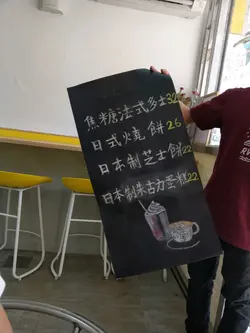 焦糖法式多士32
日式燒餅26
日本制芝士餅22
日本制朱古力蛋糕22